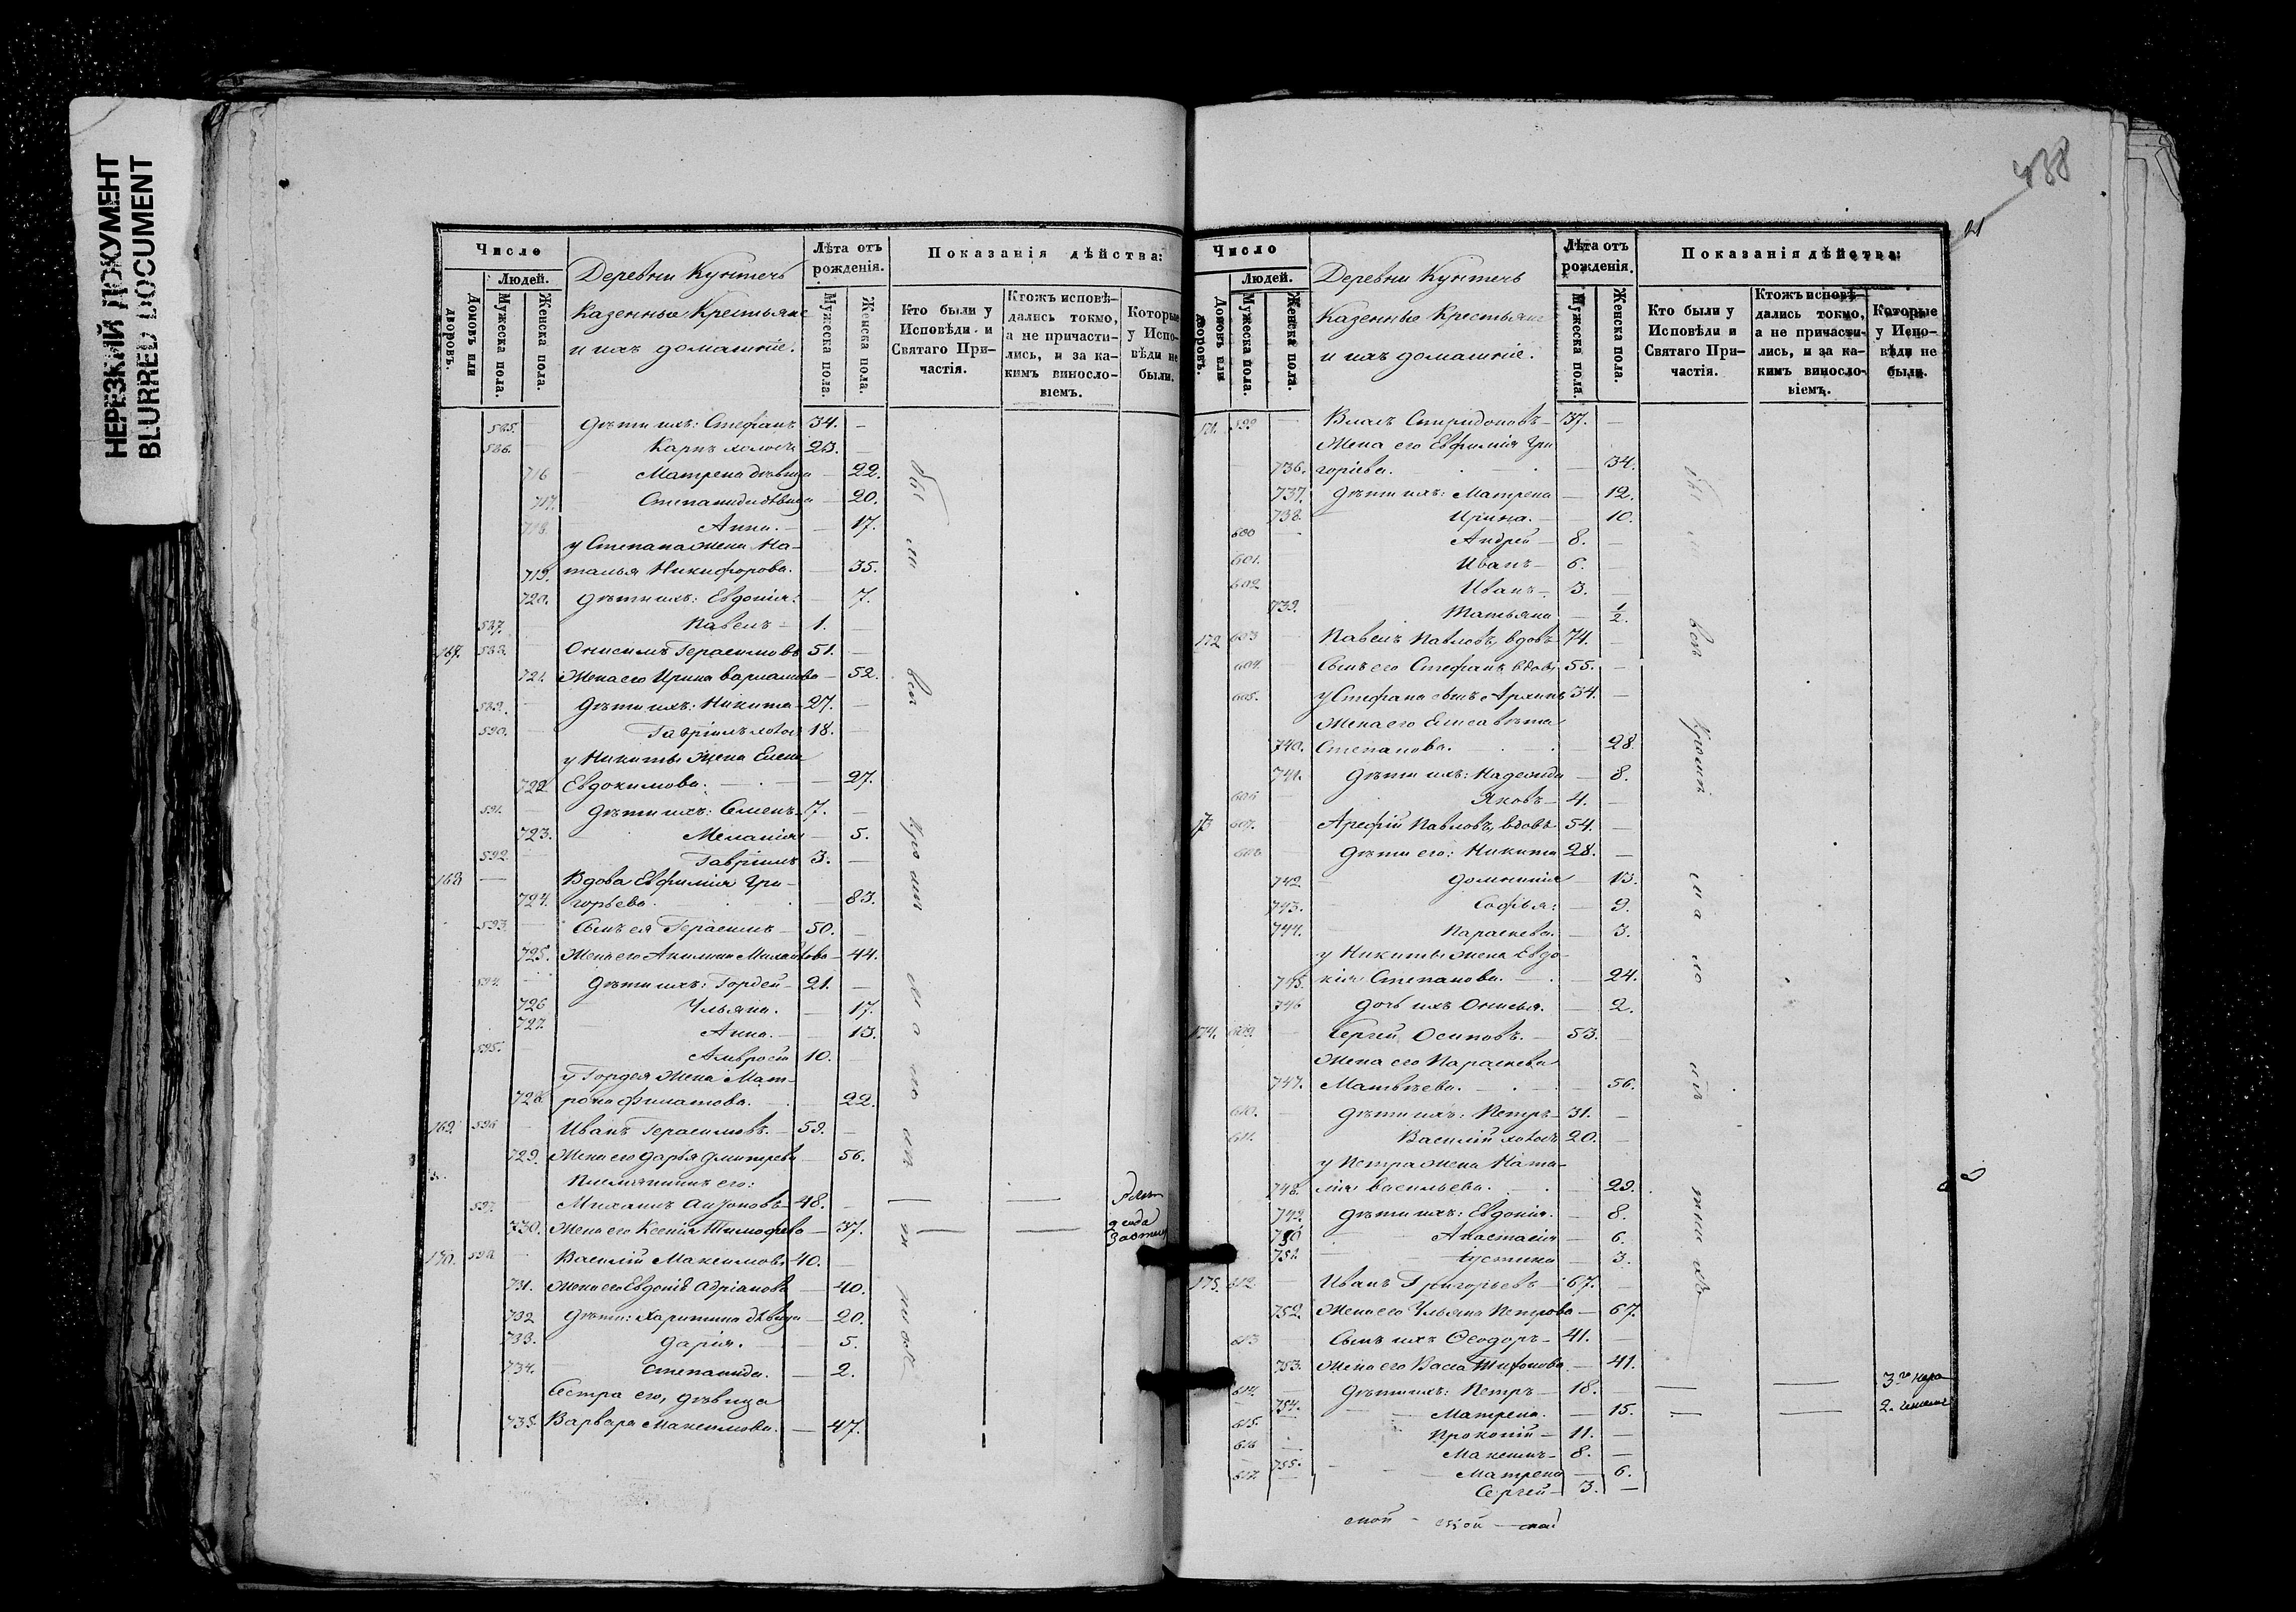 НЕРЕЗКИЙ ДОКУМЕНТ
BLURRED DOCUMENT
438
21
Число
Людей.
Домовъ или дворовъ.
Мужеска пола.
Женска пола.
Деревни Кунтечь
Казенные Крестьяне
и ихъ домашніе.
Лѣта отъ рожденія.
Мужеска пола.
Женска пола.
Показанія дѣйства:
Кто были у Исповѣди и Святаго При-
частія.
Ктожъ исповѣ-
дались токмо,
а не причасти-
лись, и за ка-
кимъ винослo-
віемъ.
Которые
у Испо-
вѣди не
были.
585. дѣти ихъ: Стефанъ 34. —
586. Карпъ холостъ 23. —
716 Матрена дѣвица — 22.
717. Степанида дѣвица — 20.
718 Анна. — 17.
у Степана жена На-
719. талья Никифорова. — 35.
720. дѣти ихъ: Евдокія: — 7.
587. Павелъ — 1. —
167. 588. Онисимъ Герасимовъ 51. —
721. Жена его Ирина Варламова — 52.
589. дѣти ихъ: Никита — 27. —
590. Гавріилъ холост 18. —
у Никиты жена Елена
722. Евдокимова. — 27.
591. дѣти ихъ: Семенъ 7. —
723. Меланія — 5.
592. Гавріилъ 3. —
168 — Вдова Евфимія Гри-
724. горьева. — 83.
593. Сынъ ея Герасимъ — 50. —
725. Жена его Акилина Михайлова — 44.
594. дѣти ихъ: Гордей — 21. —
726 Ульяна. — 17.
727. Анна. — 13.
595. Амвросій 10. —
у Гордея жена Мат-
728. рона Филатова. — 22.
169. 596 Иванъ Герасимовъ. — 59. —
729. Жена его Дарья Дмитрева — 56.
Племянникъ его:
597. Михаилъ — 48. —
730. Жена его Ксенія Тимофева — 37.
170. 598 Василій Максимовъ 40. —
731. Жена его Евдокія Адріанова — 40.
732 дѣти: Харитина дѣвица — 20.
733. Дарія. — 5.
734. Степанида. — 2.
Сестра его, дѣвица
735. Варвара Максимова. — 47.
Число
Людей.
Домовъ или дворовъ.
Мужеска пола.
Женска пола.
Деревни Кунтечь
Казенные Крестьяне
и ихъ домашніе.
Лѣта отъ рожденія.
Мужеска пола.
Женска пола.
Показанія дѣйства:
Кто были у
Исповѣди и
Святаго При-
частія.
Ктожъ исповѣ-
дались токмо,
а не причасти-
лись, и за ка-
кимъ винослo-
віемъ.
Которые
у Испо-
вѣди не
были.
171. 599 Власъ Спиридоновъ — 37. —
Жена его Евфимія Гри
736. горіева. — 34.
737. дѣти ихъ: Матрена — 12.
738. Ирина. — 10.
600 Андрей — 8. —
601. Иванъ — 6. —
602 Иванъ — 3. —
739. Татьяна — 1/2.
172 603 Павелъ Павловъ, вдовъ 74. —
604. Сынъ его Стефанъ вдовъ 55. —
605. у Стефана сынъ Архипъ 34. —
Жена его Елисавета
740. Степанова. — 28.
741. дѣти ихъ: Надежда — 8.
606 Яковъ — 4. —
173 607. Арефій Павловъ, вдовъ 54. —
608 дѣти его: Никита 28. —
742 Домникія — 13.
743. Софья: — 9.
744. Параскева. — 3.
у Никиты жена Евдо-
745. кія Степанова. — 24.
746 дочь ихъ Онисья. — 2.
174. 609. Сергѣй Осиповъ. — 53. —
Жена его Параскева
747. Матвѣева. — 56.
610. дѣти ихъ: Петръ — 31. —
611. Василій холостъ 20. —
у Петра жена Ната-
748. лія Васильева. — 29.
749. дѣти ихъ: Евдокія. — 8.
750 Анастасія — 6.
751 Іустина — 3.
175. 612. Иванъ Григорьевъ — 67. —
752. Жена его Ульяна Петрова — 67.
613 Сынъ ихъ Ѳеодоръ — 41. —
753. Жена его Васса — 41.
614. дѣти ихъ: Петръ — 18. —
754. Матрена. — 15.
615. Прокопій — 11. —
616 Максимъ — 8. —
755. Матрена — 6.
617. Сергѣй — 3. —